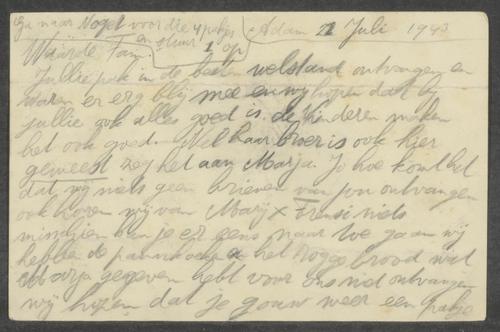 Ga naar Nogel voor die 4 pakjes
en stuur 1 op
Adam 21 Juli 1943
Waarde Fam.
Jullie pak in de besten welstand ontvangen en
waren er erg blij mee en wij hopen dat bij
jullie ook alles goed is. de kinderen maken
het ook goed. Mel haar broer is ook hier
geweest zeg het aan Marja. Jo hoe komt het
dat wij niets geen brieven van jou ontvangen
ook horen wij van Marij x Fransi niets
misschien kan je er eens naar toe gaan wij
hebben de pannekoek en het rogge brood wat
Marja gegeven hebt voor ons niet ontvangen
wij hopen dat je gouw weer een pakje